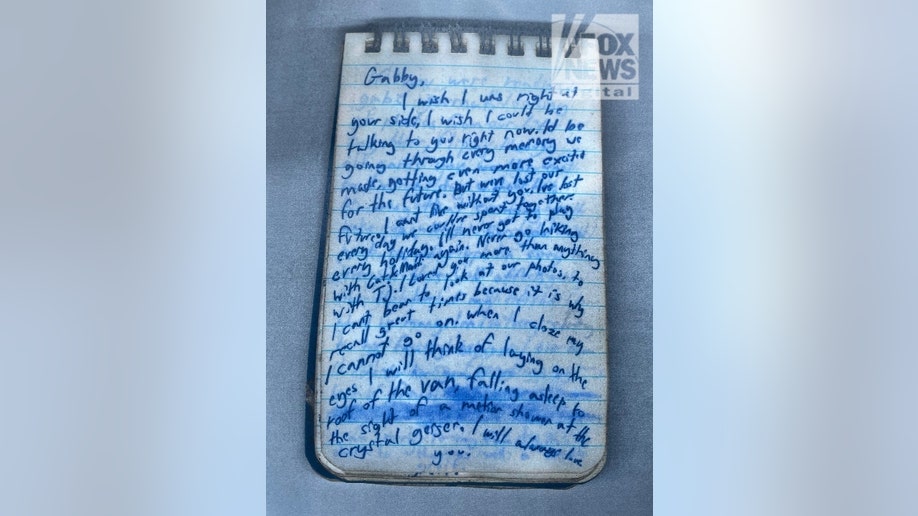 FOX
NEWS
Digital
Gabby,
I wish I was right at
your side, I wish I could be
talking to you right now. Id be
going through every memory we
made, getting even more excited
for the future. But were lost our
future. I cant live without you. Ive lost
every day we could've spent together.
every holiday. I'll never get to play
with again. Never go hiking
with TJ. I loved you more than anything
I cant bear to look at our photos, to
recall great times because it is why
I cannot go on. when I close my
eyes I will think of laying on the
roof of the van, falling asleep to
the sight of a meteor shower at the
crystal geyser. I will always love
you.